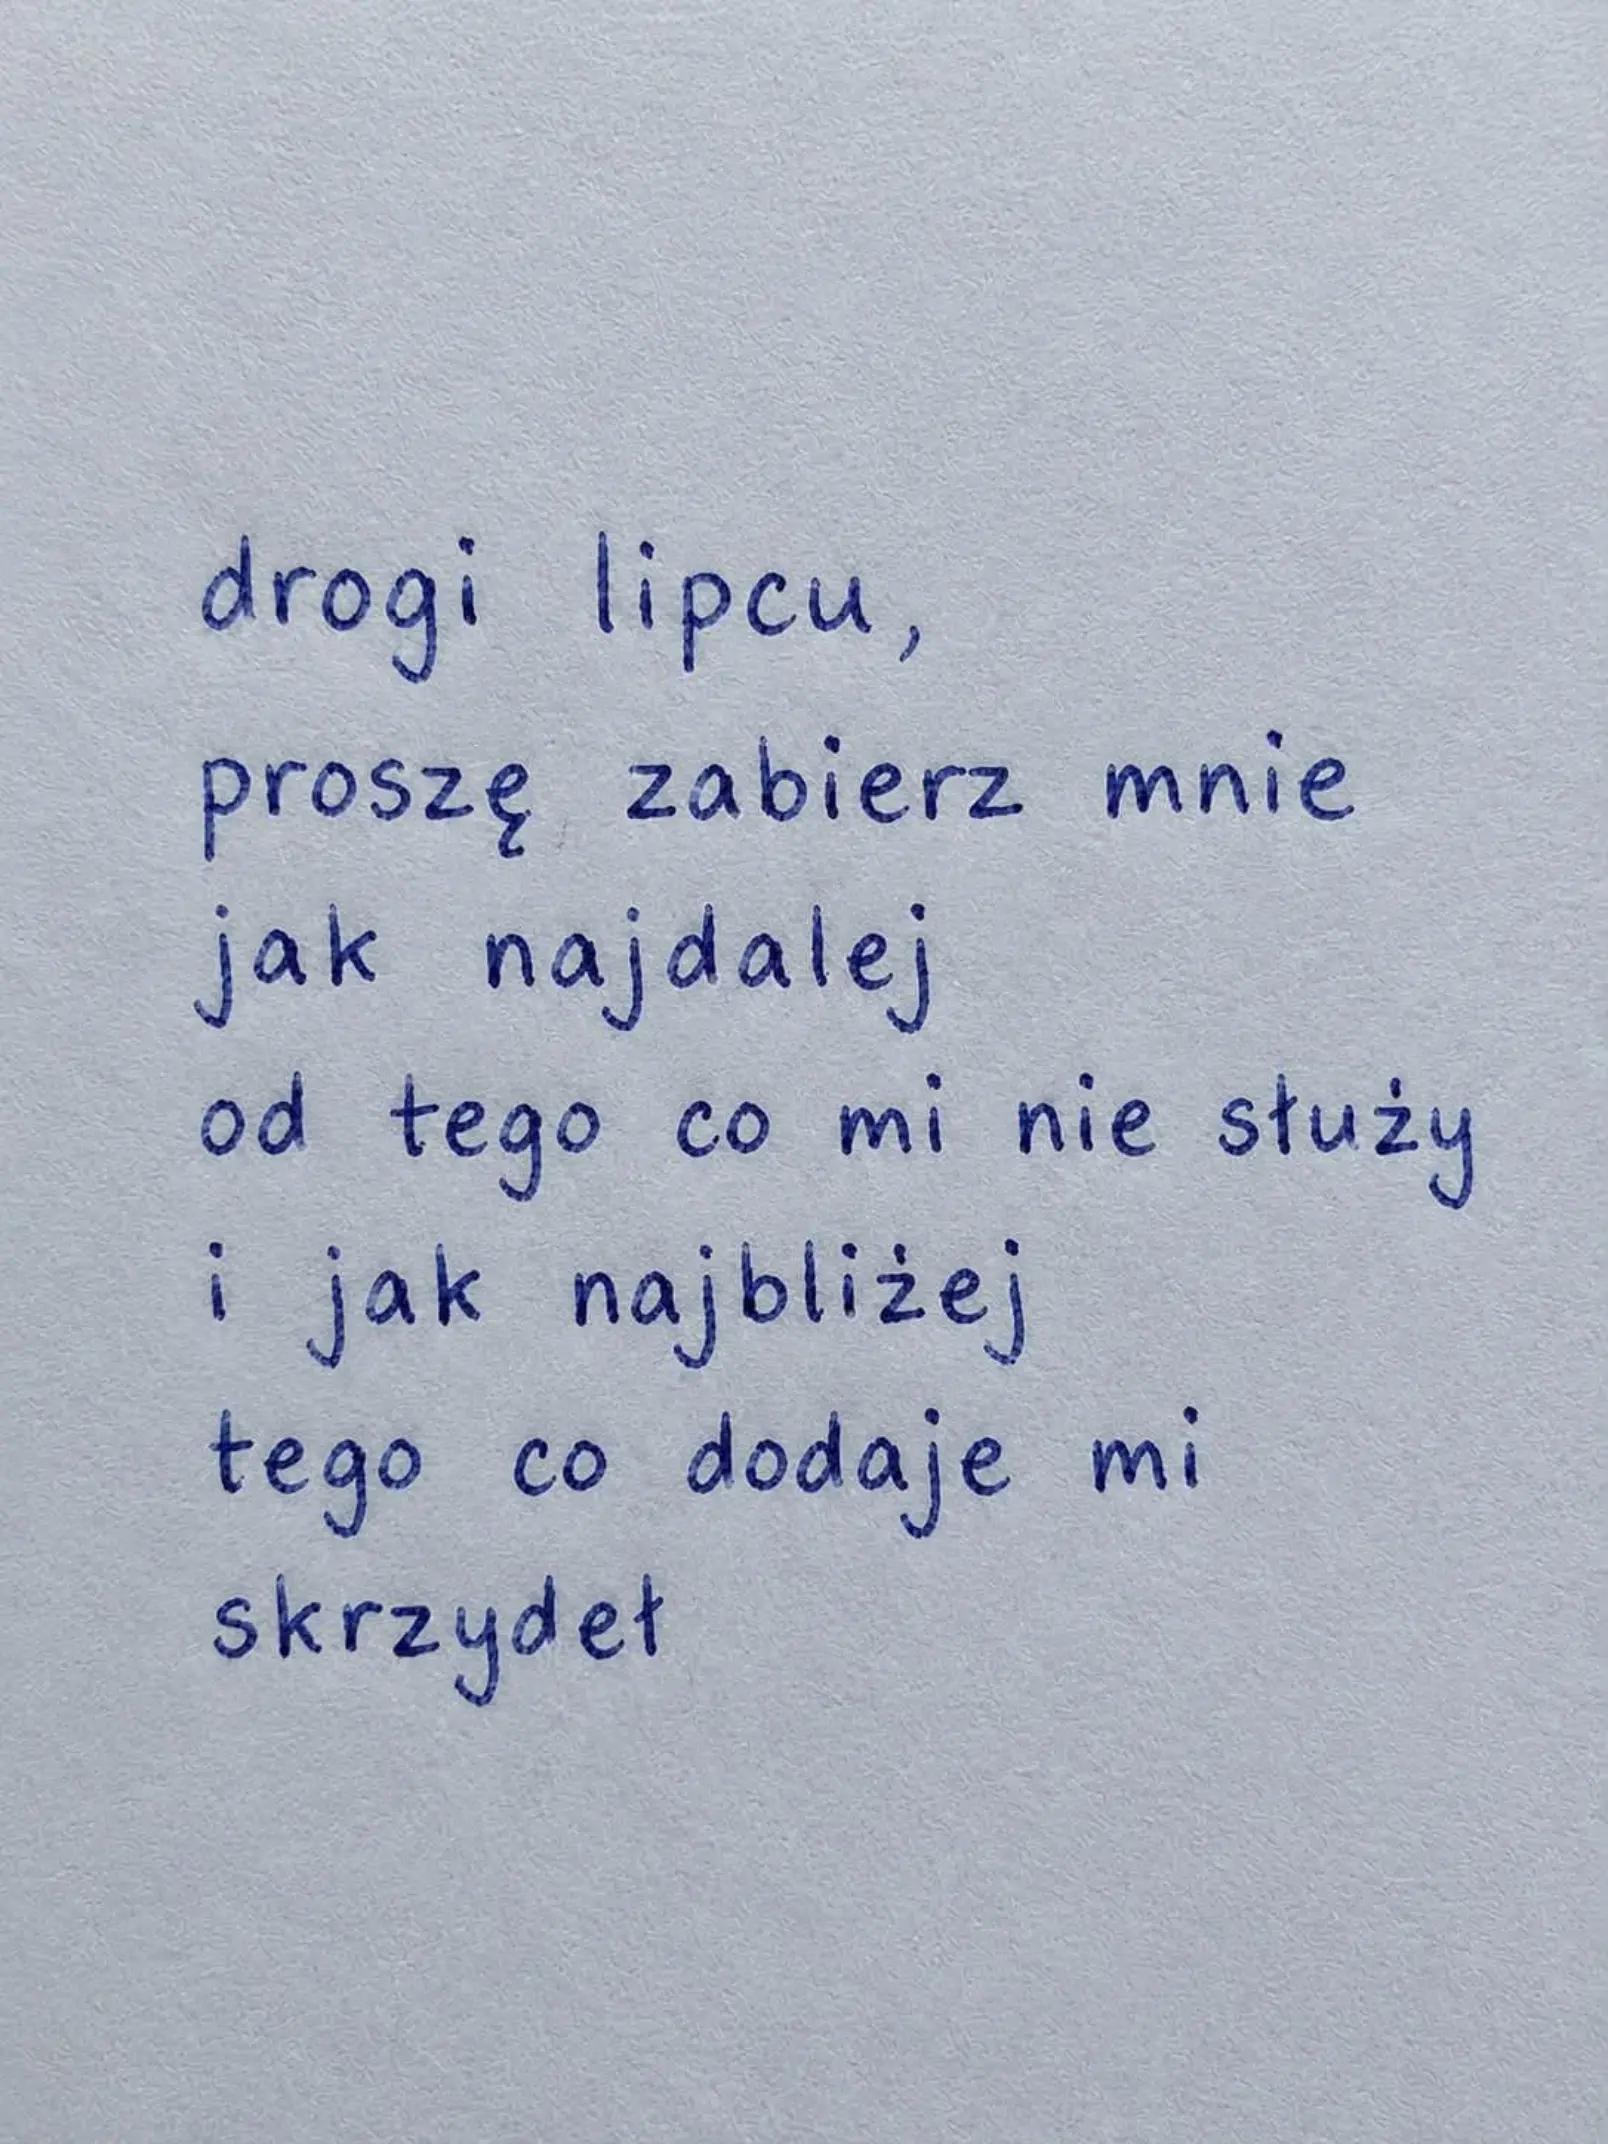 drogi lipcu,
proszę zabierz mnie
jak najdalej
od tego co mi nie służy
i jak najbliżej
tego co dodaje mi
skrzydeł